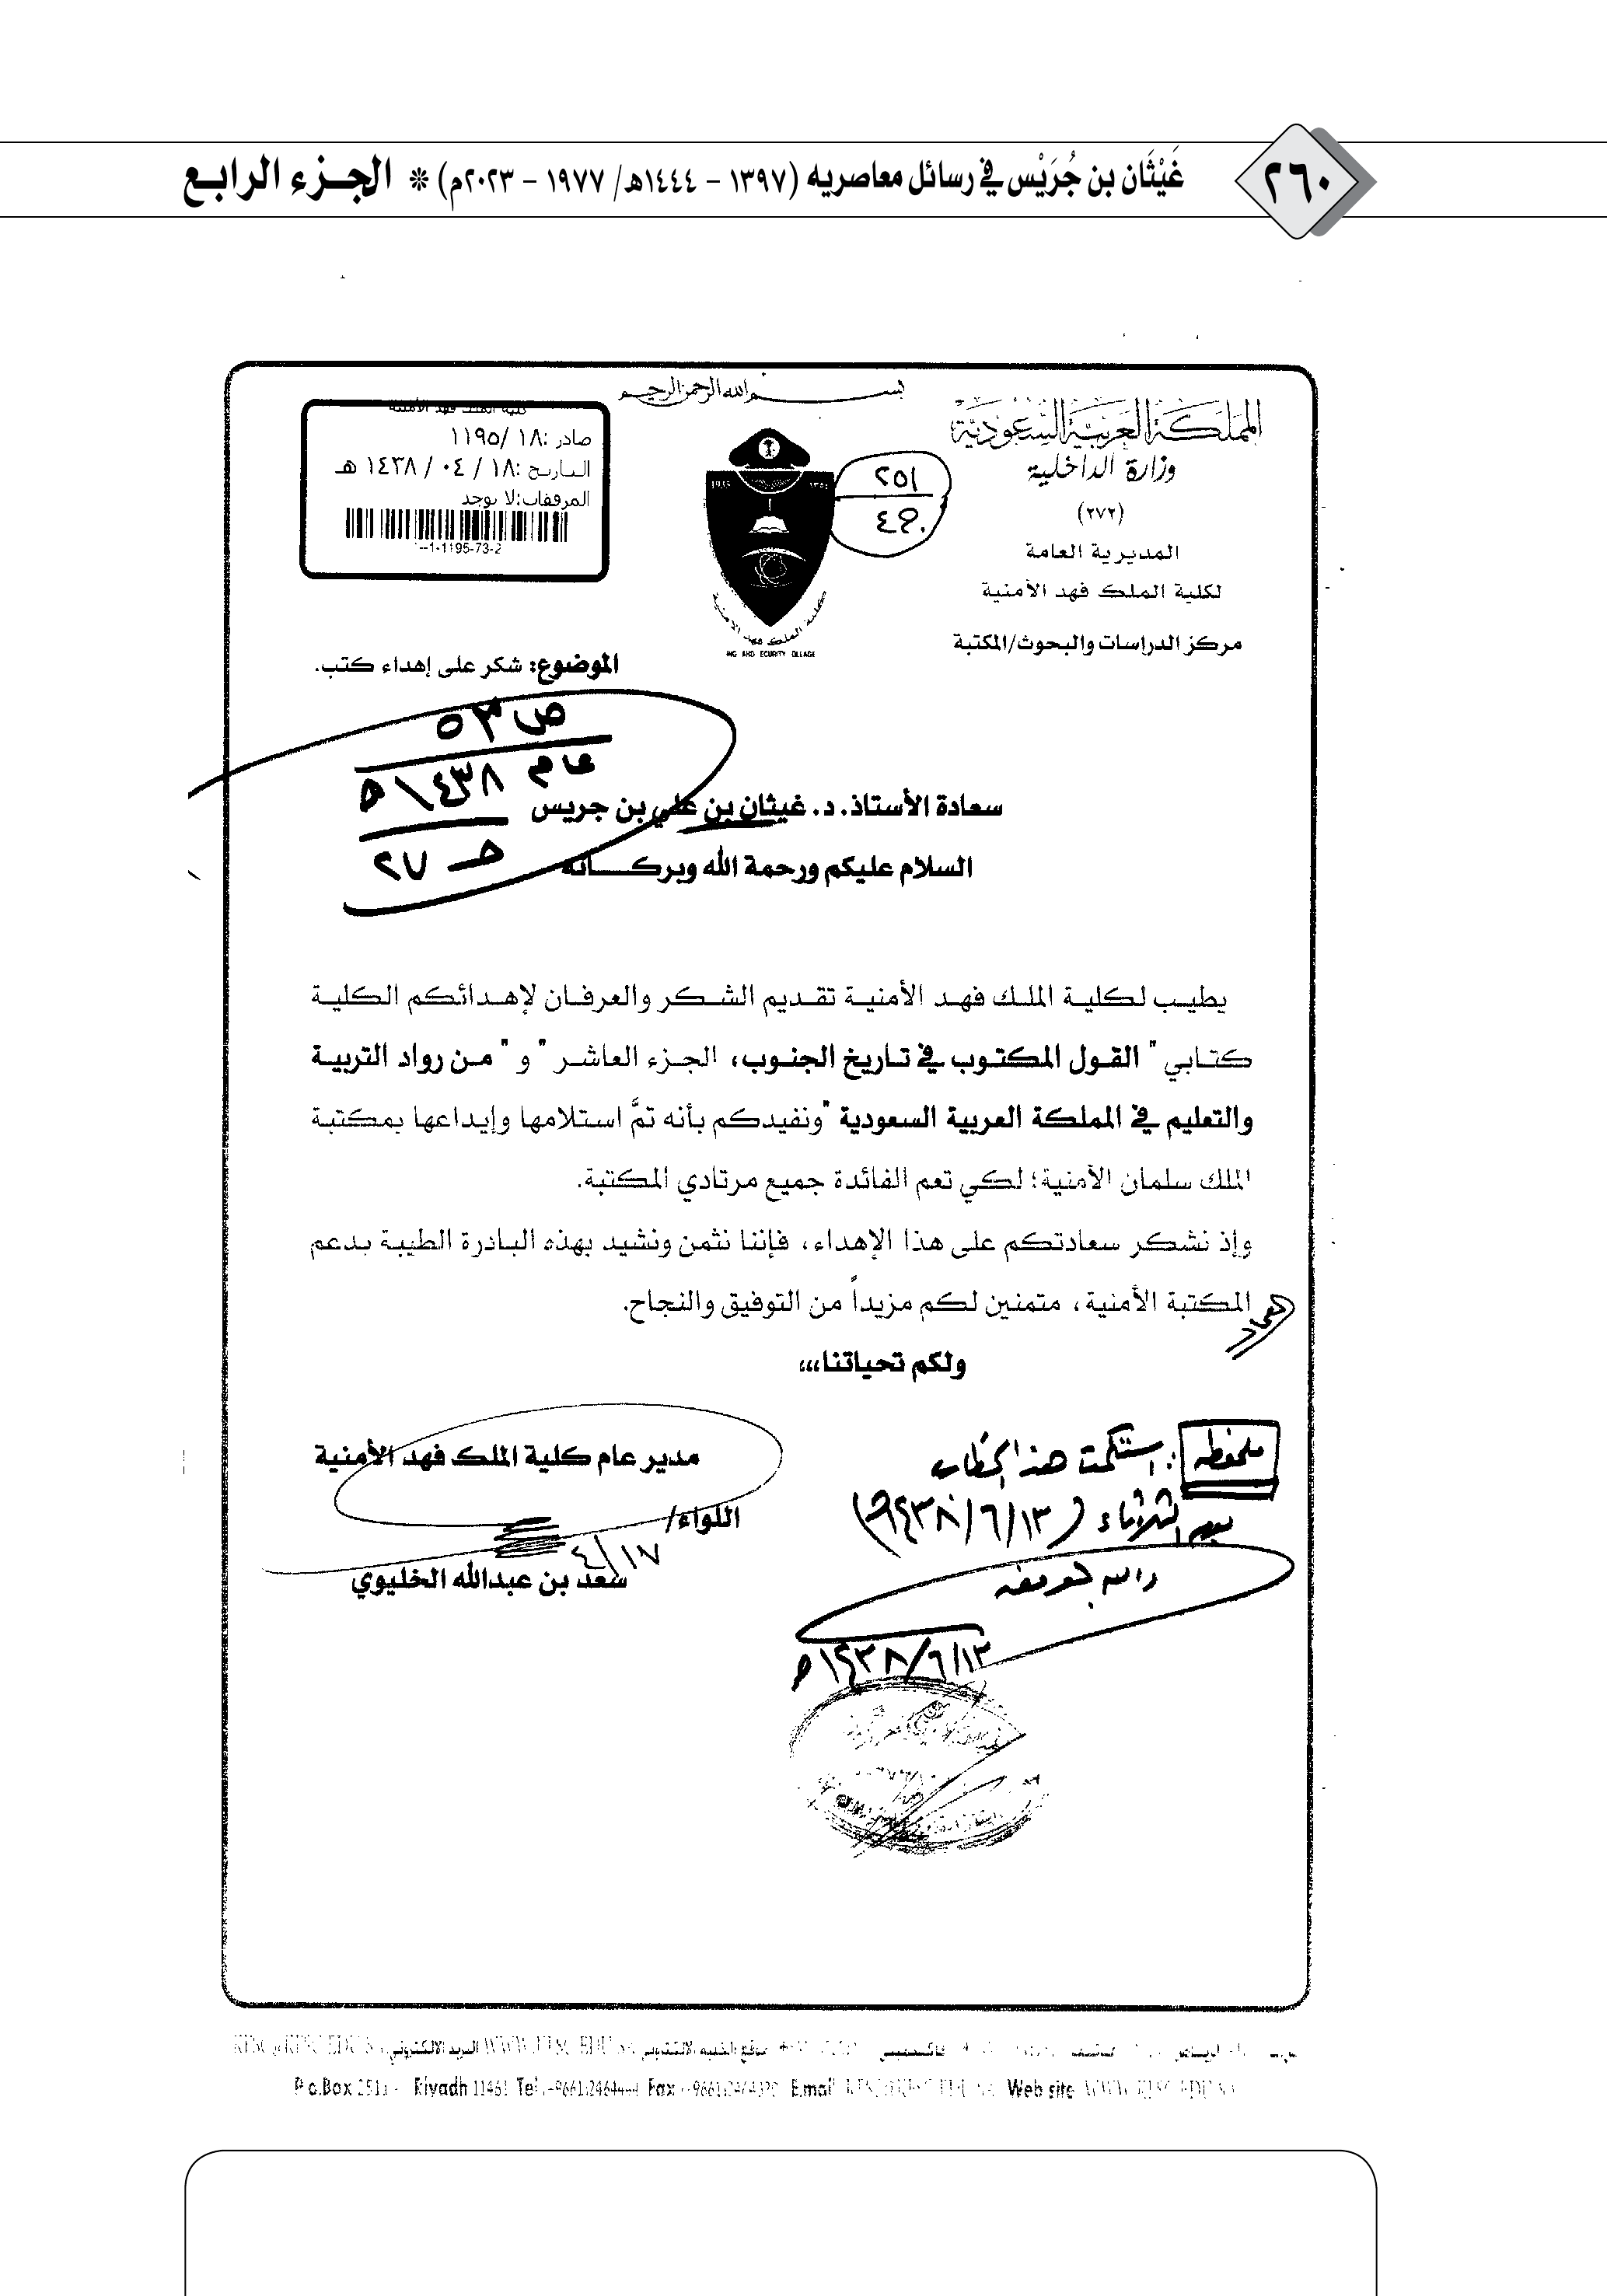 ٢٦٠
غَيْثَان بن جُرَيْس في رسائل معاصريه (١٣٩٧ - ١٤٤٤هـ/ ١٩٧٧ - ٢٠٢٣م) * الجـزء الرابـع
بسم الله الرحمن الرحيم
المملكة العربية السعودية
وزارة الداخلية
(٢٧٢)
المديرية العامة
لكلية الملك فهد الأمنية
مركز الدراسات والبحوث/المكتبة
٢٥١
كلية الملك فهد الأمنية
كلية الملك فهد الأمنية
صادر :١٨ /١١٩٥
التاريخ :١٨ / ٠٤ / ١٤٣٨ هـ
المرفقات:لا يوجد
1-1195-73-2
الموضوع: شكر على إهداء كتب.
ص ٥٣
عام ١٤٣٨هـ
حـ ٢٧
سعادة الأستاذ. د. غيثان بن علي بن جريس
السلام عليكم ورحمة الله وبركـــاته
يطيـب لكليـة الملـك فهـد الأمنيـة تقـديم الشـكر والعرفـان لإهـدائكم الكليـة
كتـابي " القـول المكتـوب في تـاريخ الجنـوب، الجـزء العاشـر " و " مـن رواد التربيـة
والتعليم في المملكة العربية السعودية "ونفيدكم بأنه تمَّ استلامها وإيداعها بمكتبة
الملك سلمان الأمنية؛ لكي تعم الفائدة جميع مرتادي المكتبة.
وإذ نشكر سعادتكم على هذا الإهداء، فإننا نثمن ونشيد بهذه البادرة الطيبة بدعم
المكتبة الأمنية، متمنين لكم مزيداً من التوفيق والنجاح.
ولكم تحياتنا،،،
مدير عام كلية الملك فهد الأمنية
اللواء/
١٧/٤
سعد بن عبدالله الخليوي
ملحفظه : استلمت هذا الخطاب
يوم الثلاثاء (١٣/٦/١٤٣٨هـ)
والله الموفق
١٣/٦/١٤٣٨هـ
P.o.Box Riyadh 11461 Tel Fax E.mail Web site